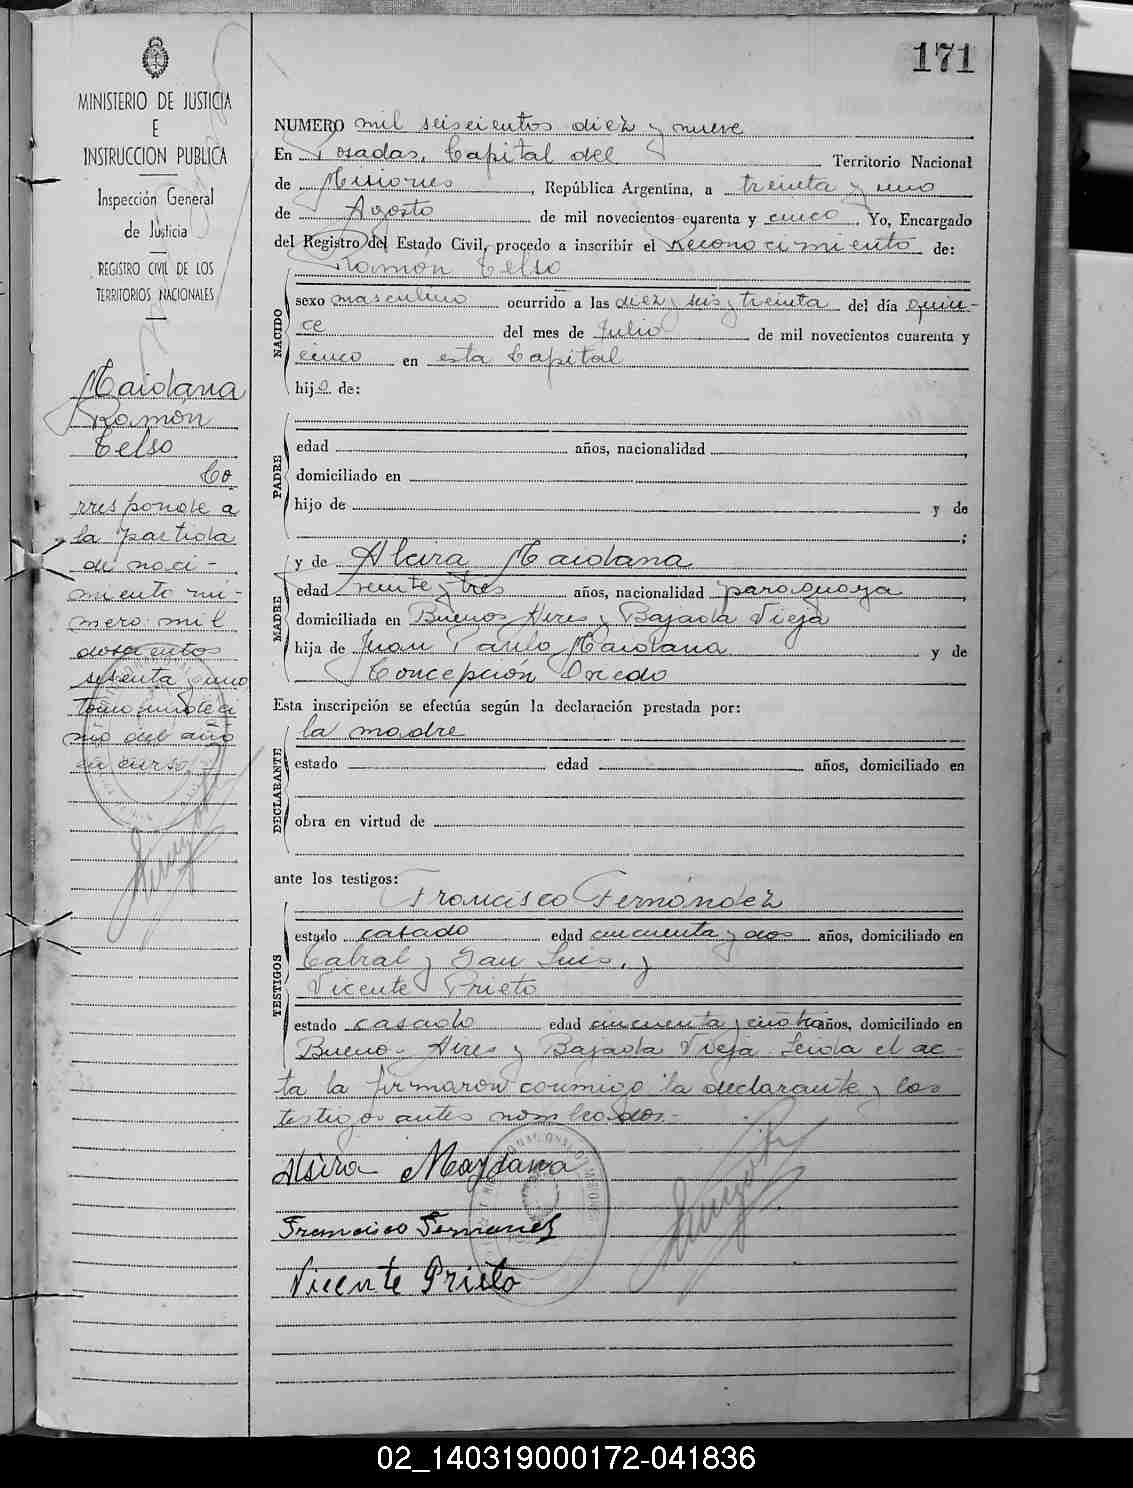 171
MINISTERIO DE JUSTICIA
E
INSTRUCCION PUBLICA
Inspección General
de Justicia
REGISTRO CIVIL DE LOS
TERRITORIOS NACIONALES
Maidana
Ramón
Celso
Co
rresponde a
la partida
de naci-
miento nú-
mero mil
doscientos
sesenta y uno
tomo
del año
en curso
NUMERO mil seiscientos diez y nueve
En Posadas, Capital del Territorio Nacional
de Misiones, República Argentina, a treinta y uno
de Agosto de mil novecientos cuarenta y cinco. Yo, Encargado
del Registro del Estado Civil, procedo a inscribir el Reconocimiento de:
Ramón Celso
NACIDO
sexo masculino ocurrido a las diez y seis y treinta del día quin-
ce del mes de Julio de mil novecientos cuarenta y
cinco en esta Capital
hijo de:
PADRE
edad años, nacionalidad ,
domiciliado en
hijo de y de
;
MADRE
y de Alcira Maidana
edad veinte y tres años, nacionalidad paraguaya,
domiciliada en Buenos Aires y Bajada Vieja
hija de Juan Pablo Maidana y de
Concepción Ovedo
Esta inscripción se efectúa según la declaración prestada por:
la madre
DECLARANTE
estado edad años, domiciliado en
obra en virtud de
ante los testigos:
Francisco Fernández
TESTIGOS
estado casado edad cincuenta y dos años, domiciliado en
Cabral y San Luis, y
Vicente Prieto
estado casado edad cincuenta y cuatro años, domiciliado en
Buenos Aires y Bajada Vieja. Leida el ac-
ta la firmaron conmigo la declarante y los
testigos antes nombrados.-
Alsira Maydana
Francisco Fernandez
Vicente Prieto
02_140319000172-041836